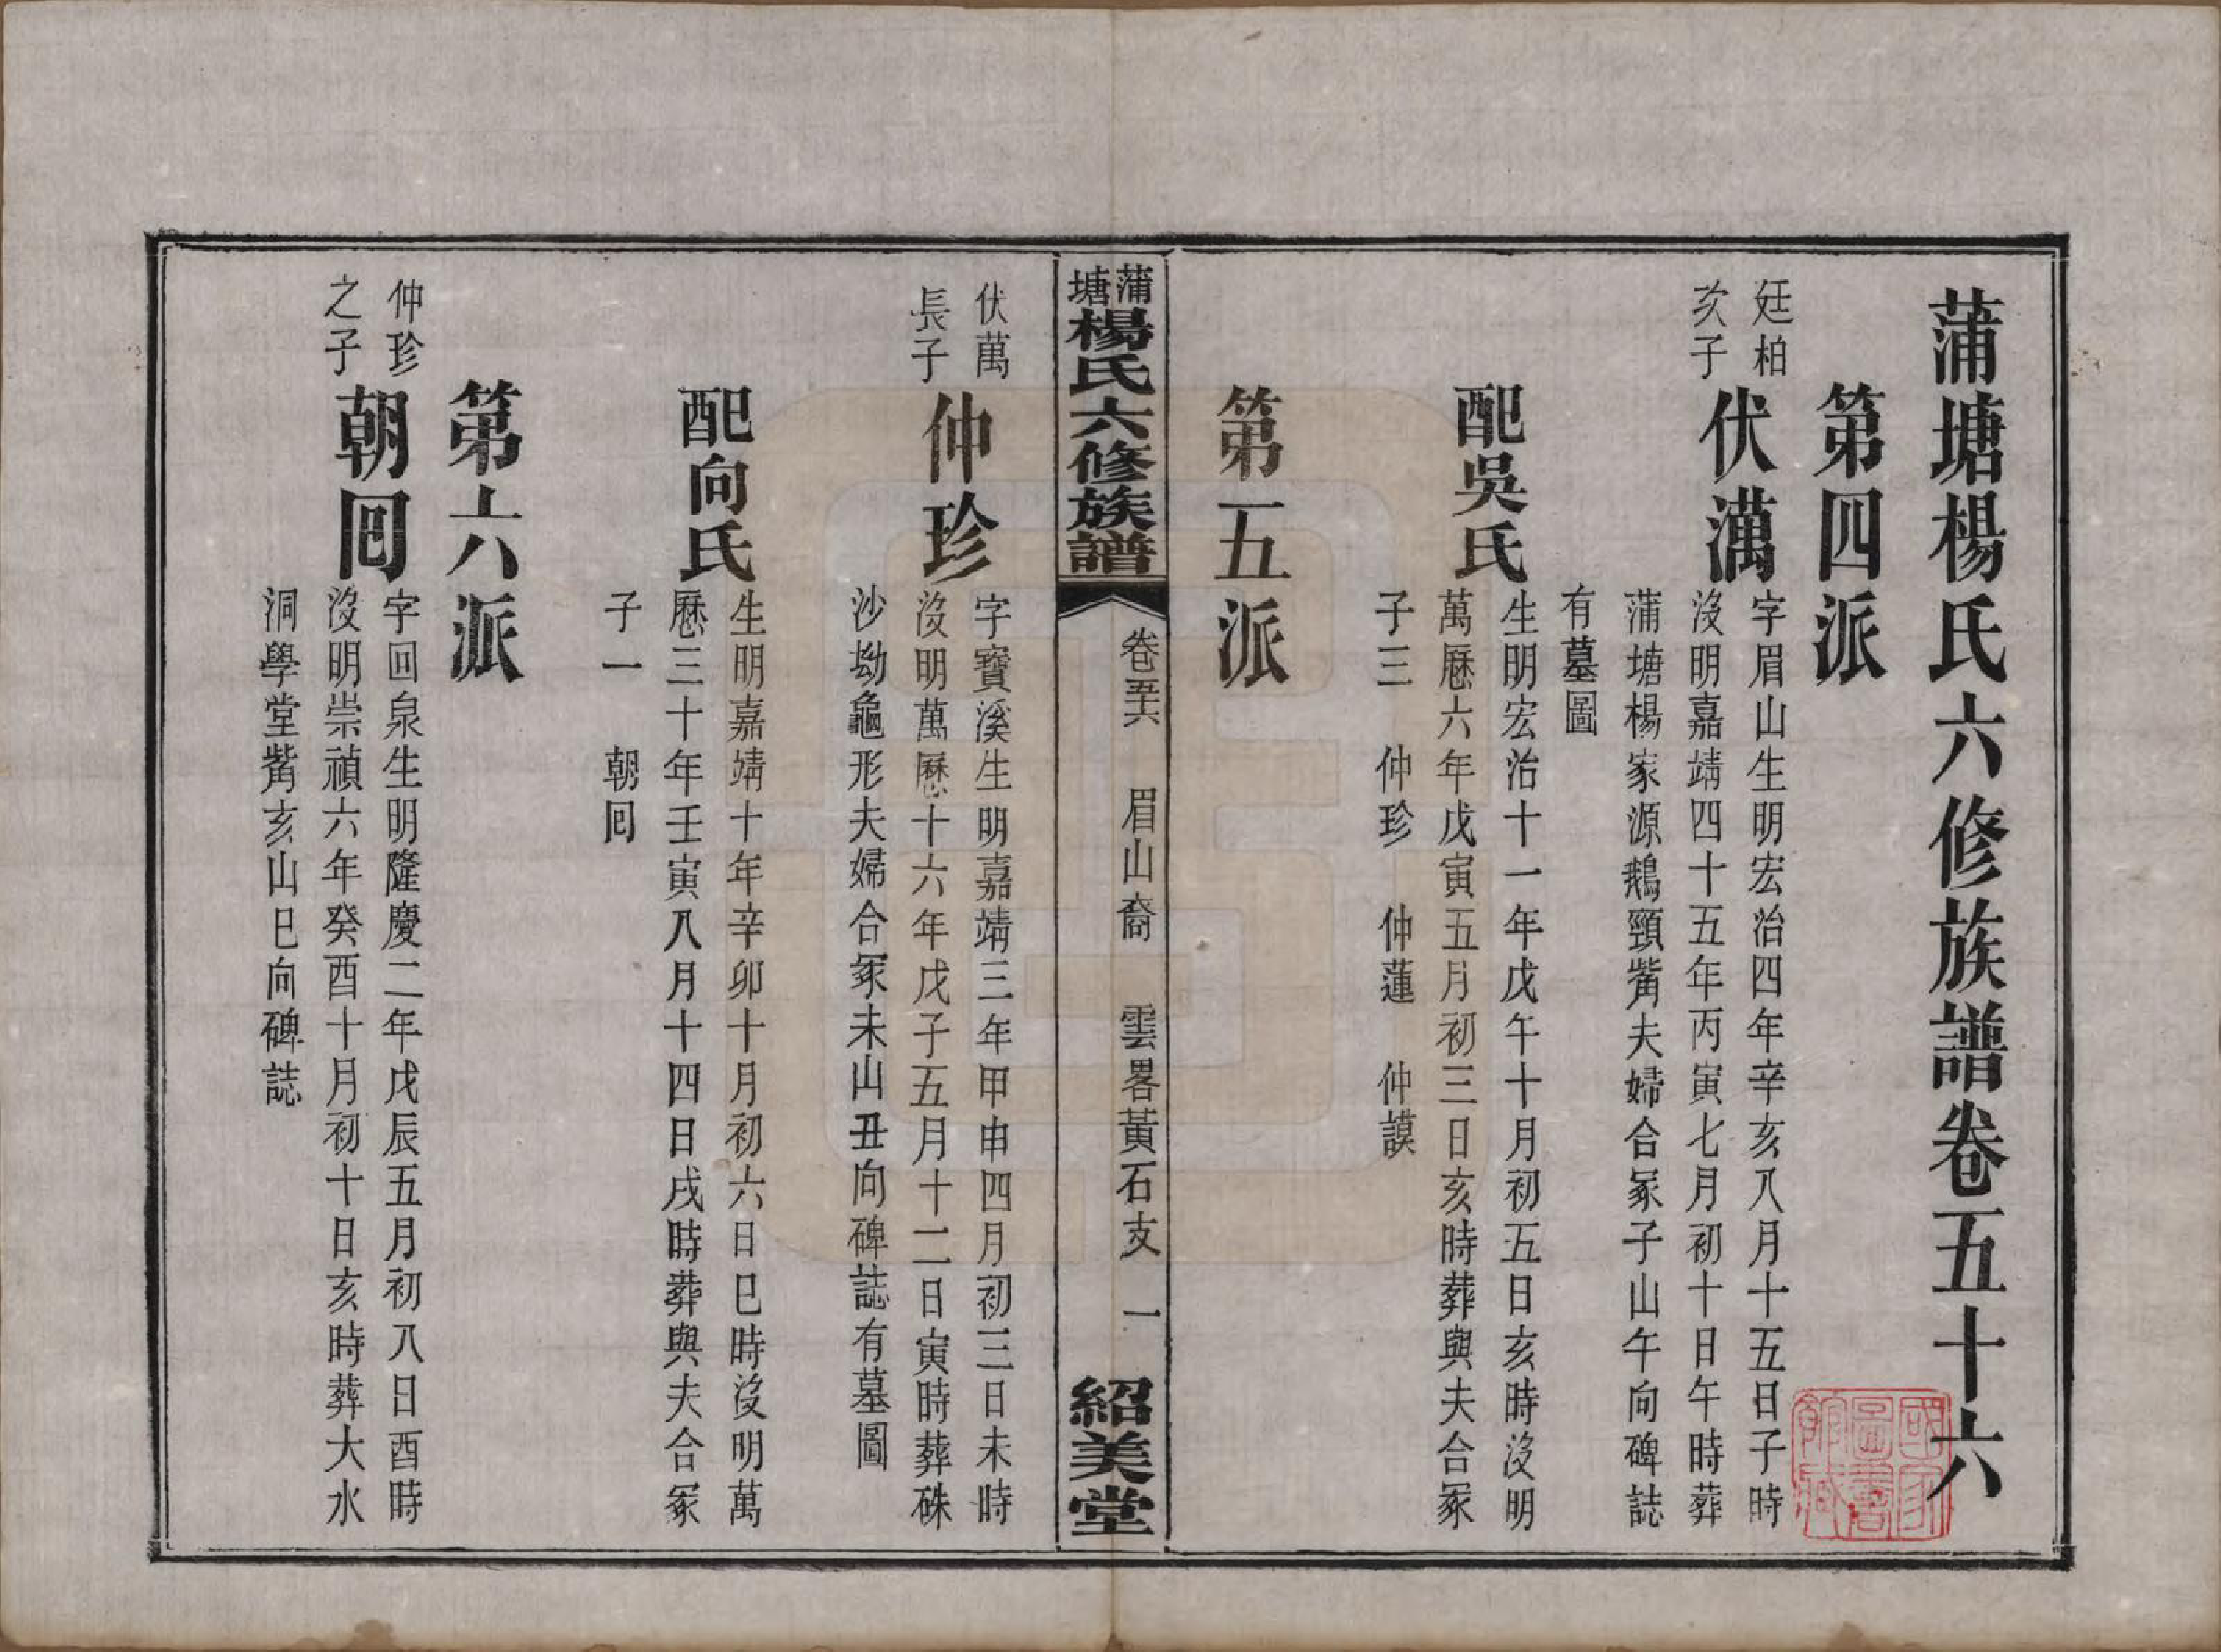 蒲塘楊氏六修族譜卷五十六
第四派
廷柏
次子
伏澫
字眉山生明宏治四年辛亥八月十五日子時
沒明嘉靖四十五年丙寅七月初十日午時葬
蒲塘楊家源鵝頸觜夫婦合冢子山午向碑誌
有墓圖
配吳氏
生明宏治十一年戊午十月初五日亥時沒明
萬厯六年戊寅五月初三日亥時葬與夫合冢
子三 仲珍 仲蓮 仲謨
第五派
蒲塘楊氏六修族譜
卷五六 眉山裔 雲畧黃石支 一
紹美堂
伏萬
長子
仲珍
字寶溪生明嘉靖三年甲申四月初三日未時
沒明萬厯十六年戊子五月十二日寅時葬硃
沙坳龜形夫婦合冢未山丑向碑誌有墓圖
配向氏
生明嘉靖十年辛卯十月初六日巳時沒明萬
厯三十年壬寅八月十四日戌時葬與夫合冢
子一 朝囘
第六派
仲珍
之子
朝囘
字回泉生明隆慶二年戊辰五月初八日酉時
沒明崇禎六年癸酉十月初十日亥時葬大水
洞學堂觜亥山巳向碑誌
國家圖書館藏